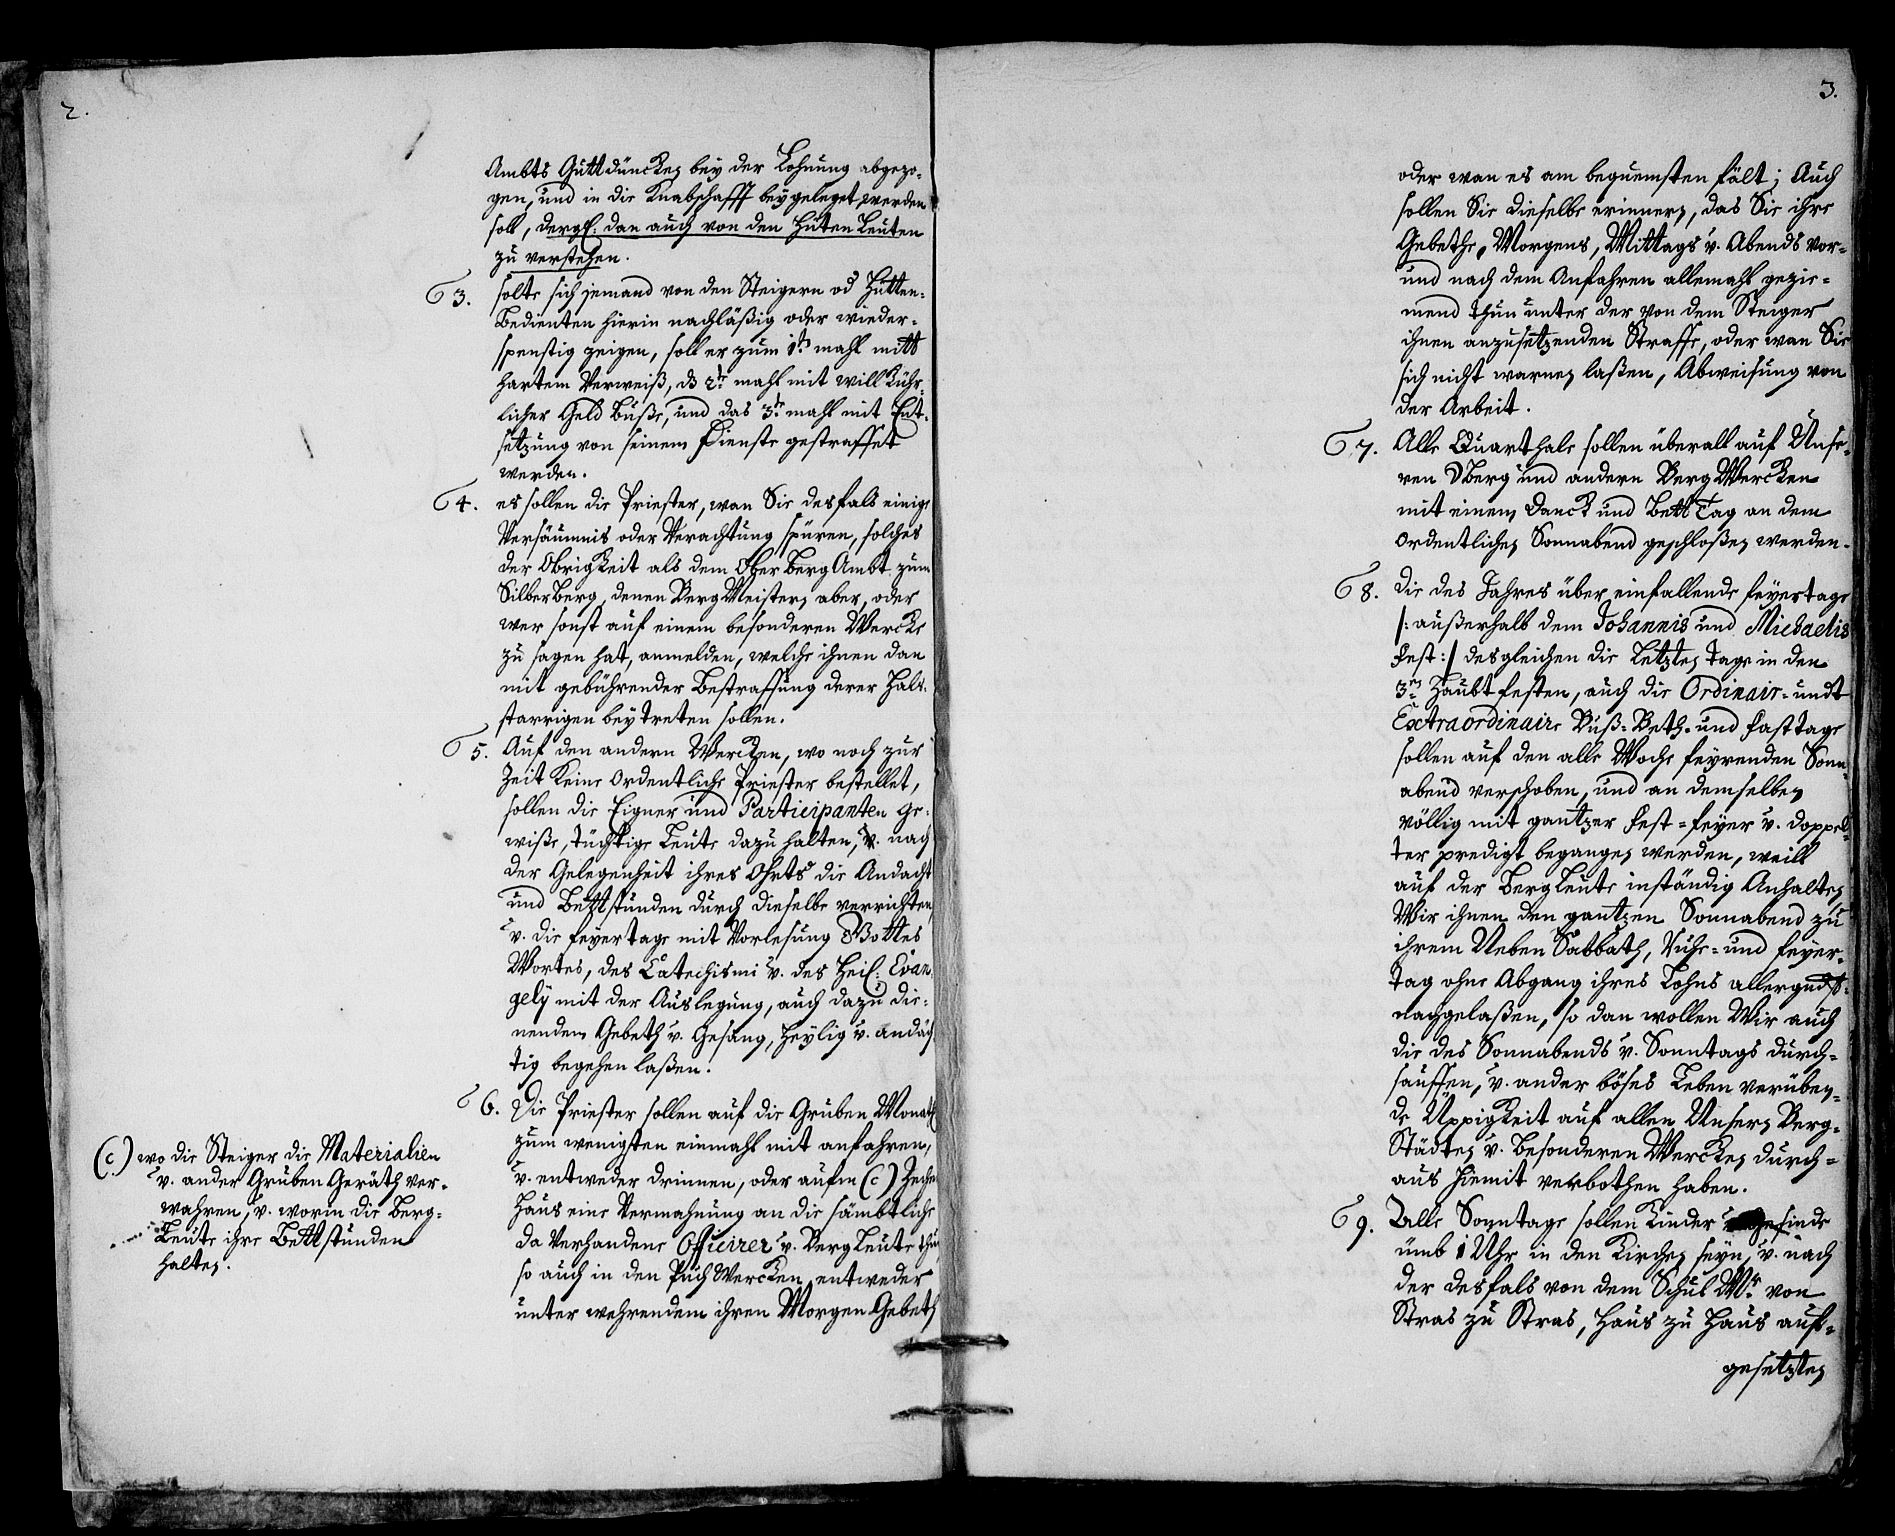 2.
Ambts Guttdüncken bey der Lohnung abgezo-
gen, und in die Knabschafft beygeleget werden
soll, dergl: dan auch von den Hüten Leuten
zu verstehen.
§ 3. solte sich jemand von den Steigern od Hütten-
Bedienten hierin nachläßig oder wieder-
spenstig zeigen, soll er zum 1st mahl mitt
hartem Verweiß, ds 2te mahl mit willkühr-
licher Geld Buße, und das 3te mahl mit Ent-
setzung von seinem Dienste gestraffet
werden.
§ 4. es sollen die Priester, wan Sie desfals einige
Versäumnis oder Verachtung spüren, solches
der Obrigkeit als dem Ober Berg Ambt zum
Silberberg, denen Berg Meistern aber, oder
wer sonst auf einem besonderen Wercke
zu sagen hat, anmelden, welche ihnen dan
mit gebührender Bestraffung derer Hals-
starrigen beytreten sollen.
§ 5. Auf den andern Wercken, wo noch zur
Zeit keine ordentliche Priester bestellet,
sollen die Eigner und Participanten ge-
wiße, tüchtige Leute dazu halten, v. nach
der Gelegenheit ihres Ohrts die Andacht
und Bettstunden durch dieselbe verrichten,
v. die feyertage mit Vorlesung Gottes
Wortes, des Catechismi v. des Heil: Evan-
gely mit der Auslegung, auch dazu die-
nendem Gebeth v. Gesang, heylig v. andäch
tig begehen laßen.
§ 6. Die Priester sollen auf die Gruben Monath
zum wenigsten einmahl mit anfahren,
v. entweder drinnen, oder aufm (c) Zechen
Haus eine Vermahnung an die sämbtliche
da Verhandene Officirer v. Bergleute thun
so auch in den Puch Wercken entweder
unter wehrendem ihren Morgen Gebeth
(c) wo die Steiger die Materialien
v. ander Gruben Geräth ver-
wahren, v. worin die Berg-
Leute ihre Bettstunden
halten.
3.
oder wan es am bequemsten fält; Auch
sollen Sie dieselbe erinnern, das Sie ihre
Gebethe, Morgens, Mittags v. Abends vor-
und nach dem Anfahren allemahl gezie-
mend thun unter der von dem Steiger
ihnen anzusetzenden Straffe, oder wan Sie
sich nicht warnen laßen, Abweisung von
der Arbeit.
§ 7. Alle Quarthale sollen überall auf Unse-
ren SBerg und andern Berg Wercken
mit einem Danck und Bett Tag an dem
ordentlichen Sonnabend geschloßen werden.
§ 8. Die des Jahres über einfallende feyertage
/: außerhalb dem Johannis und Michaelis
fest :/ desgleichen die Letzten tage in den
3en Haubt festen, auch die Ordinair- undt
Extraordinaire Buß- Beth- und fasttage
sollen auf den alle Woche feyrenden Sonn-
abend verschoben, und an demselben
völlig mit gantzer fest-feyer v. doppel-
ter predigt begangen werden, weill
auf der Bergleute inständig Anhalten
Wir ihnen den gantzen Sonnabend zu
ihrem Neben Sabbath, Ruhe- und feyer-
tag ohne Abgang ihres Lohns allergndst.
nachgelaßen, so dan wollen Wir auch
die des Sonnabends v. Sonntags durch-
sauffen, v. ander böses Leben verüben-
de Üppigkeit auf allen Unsern Berg-
Städten v. besonderen Wercken durch-
aus hiemit verbothen haben.
§ 9. Alle Sonntage sollen Kinder v. Gesinde
umb 1 Uhr in den Kirchen seyn, v. nach
der desfals von dem Schul Mr von
Stras zu Stras, Haus zu Haus auf-
gesetzten